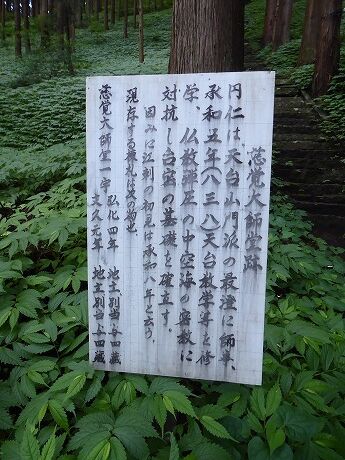 慈覚大師堂跡
円仁は、天台山門派の最澄に師事、
承和五年(八三八)天台教学等を修
学、仏教弾圧の中空海の密教に
対抗し台密の基礎を確立す。
因みに江刺の初見は承和八年と云う。
現存する棟札は次の如也
慈覚大師堂一宇 弘化四年 地主別当与四蔵
文久元年 地主別当与四蔵